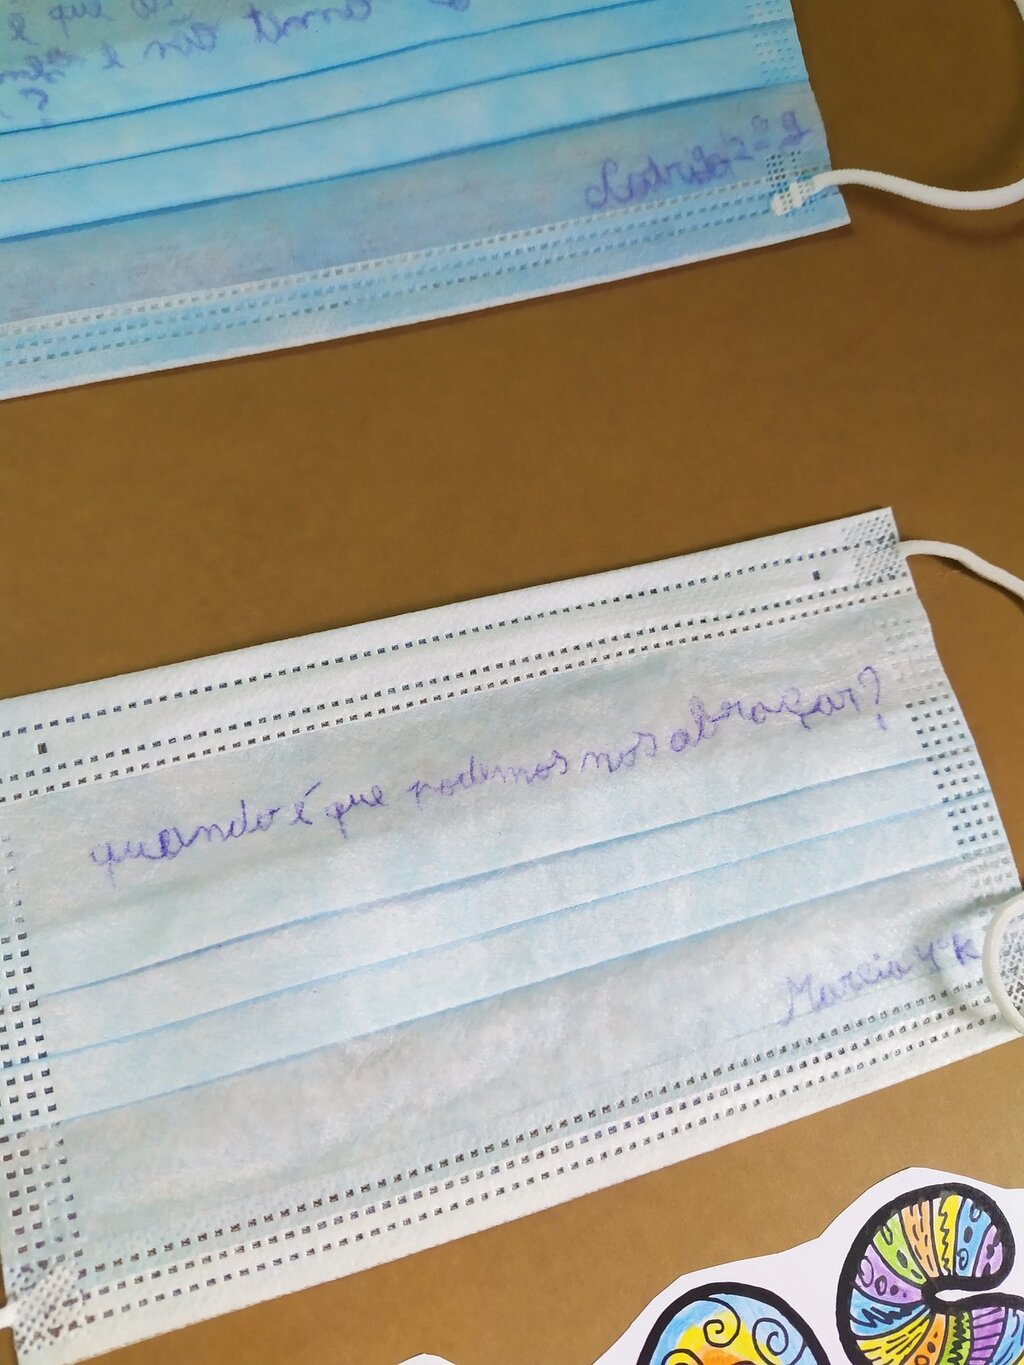 é que os
e não
?
2º g
quando é que podemos nos abraçar?
Marcia 4º k